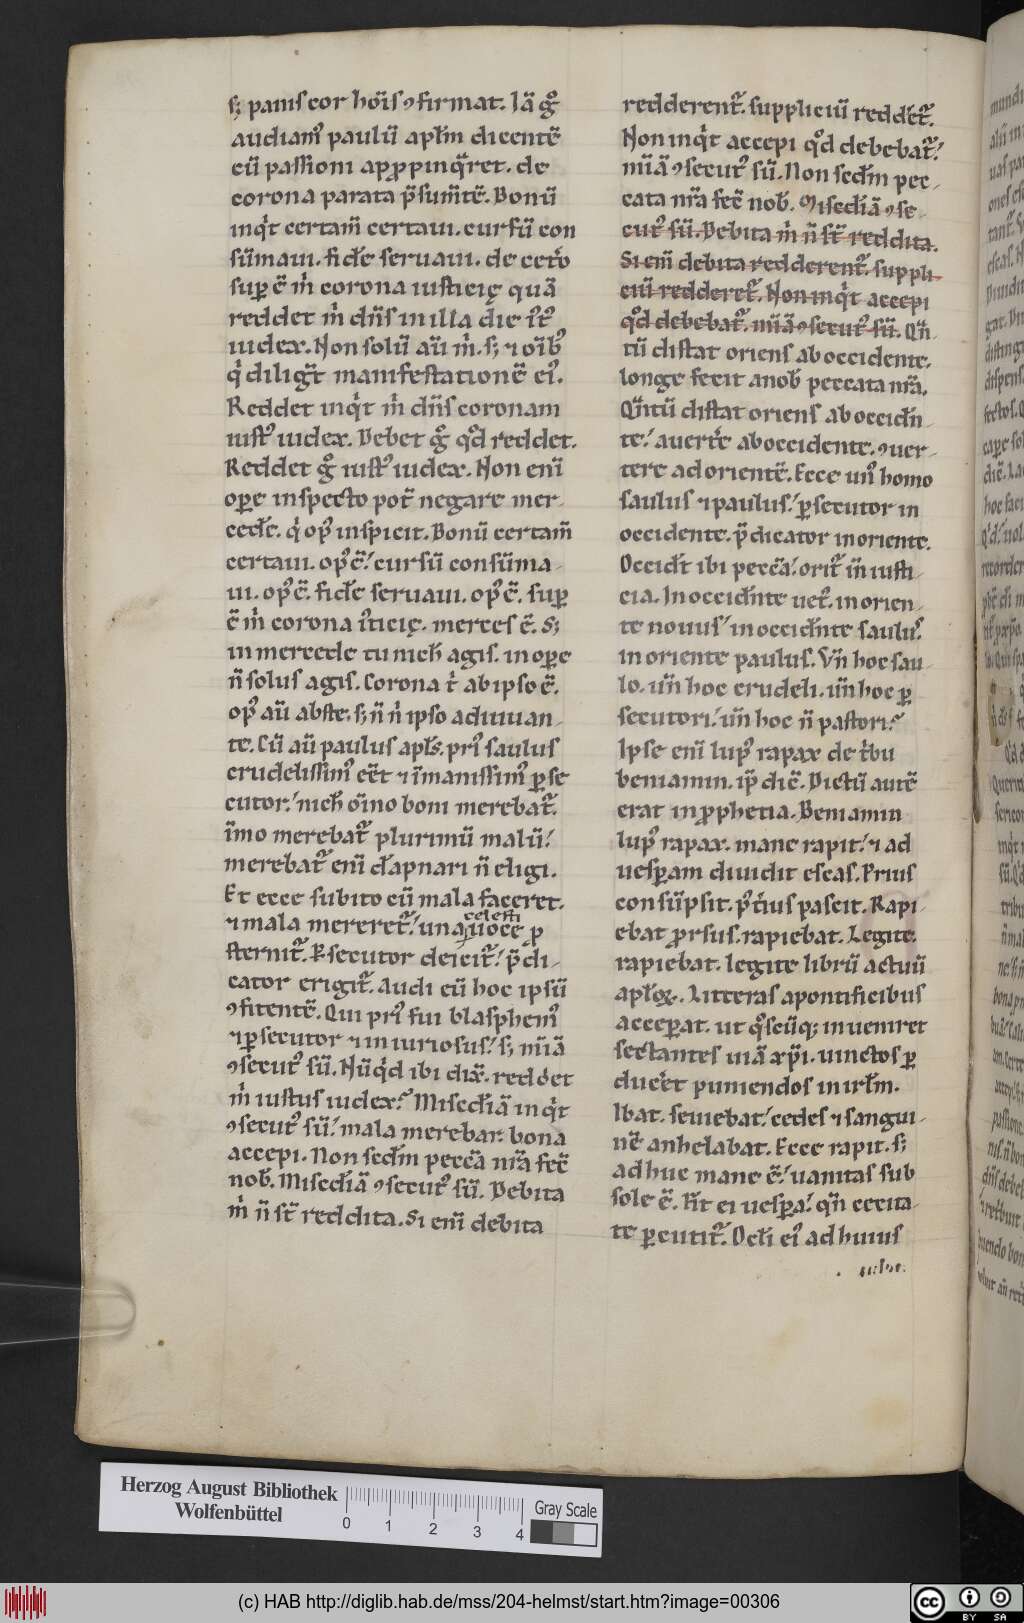 s; panis cor hoīs ꝯfirmat. Iā gͦ
audiamꝰ paulū apl̄m dicentē
cū passioni appropinq̄ret. de
corona parata p̄sum̄tē. Bonū
inqͥt certam̄ certaui. cursū con
sūmaui. fidē seruaui. de cetͦo
suꝑ ē m̄ corona iusticię quā
reddet m̄ dn̄s in illa die
iudex. Non solū aū m̄. s; ⁊ oīb;
qͥ diligt̄ manifestationē eiꝰ.
Reddet inqͥt m̄ dn̄s coronam
iustꝰ iudex. Debet gͦ qͦd reddet.
Reddet gͦ iustꝰ iudex. Non enī
opere inspecto pot̄ negare mer
cedē. qͥ opꝰ inspicit. Bonū certam̄
certaui. opꝰ ē. cursū consūma
ui. opꝰ ē. fidē seruaui. opꝰ ē. suꝑ
ē m̄ corona iꝰticię. merces ē. S;
in mercede tu nich̄ agis. in oꝑe
n̄ solus agis. Corona t̄ ab ipso ē.
opꝰ aū abste. s; n̄ n̄ ipso adiuuan
te. Cū aū paulus apl̄s. priꝰ saulus
crudelissimꝰ eēt ⁊ īmanissimꝰ ꝑse
cutor. nich̄ oīno boni merebat᷑.
īmo merebat᷑ plurimū malū.
merebat᷑ enī dāpnari n̄ eligi.
Et ecce subito cū mala faceret.
celesti
⁊ mala mereret᷑. una uoce ꝓ
sternit᷑. Ꝑsecutor deicit᷑. p̄di
cator erigit᷑. Audi eū hoc ipsū
ꝯfitentē. Qui priꝰ fui blasphemꝰ
⁊ ꝑsecutor ⁊ iniuriosus. s; mīā
ꝯsecutꝰ sū. Nūqͥd ibi dix̄. reddet
m̄ iustus iudex. Misedīā inqͥt
ꝯsecutꝰ sū. mala merebar. bona
accepi. Non sedm̄ peccā nr̄a fecē
nob̄. Misedīā ꝯsecutꝰ sū. Debita
m̄ n̄ st̄ reddita. Si enī debita
redderent᷑. suppliciū reddet᷑.
Non inqͥt accepi qͦd debebat᷑.
mīā ꝯsecutꝰ sū. Non sedm̄ pec
cata nr̄a fecē nob̄. Misedīā ꝯse
cutꝰ sū. Debita m̄ n̄ st̄ reddita.
Si enī debita redderent᷑. suppli
ciū redderet᷑. Non inqͥt accepi
qͦd debebat᷑. mīā ꝯsecutꝰ sū. Qn̄
tū distat oriens ab occidente.
longe fecit a nob̄ peccata nr̄a.
Qn̄tū distat oriens ab occidn̄
te. auertē ab occidente. ꝯuer
tere ad orientē. Ecce unꝰ homo
saulus ⁊ paulus. ꝑsecutor in
occidente. p̄dicator in oriente.
Occidt̄ ibi peccā. orit᷑ in̄ iusti
cia. In occidn̄te uet̄. in orien
te nouus. in occidn̄te saulꝰ.
in oriente paulus. Vn̄ hoc sau
lo. un̄ hoc crudeli. un̄ hoc ꝑ
secutori. un̄ hoc n̄ pastori.
Ipse enī lupꝰ rapax de tͥbu
beniamin. ip̄ dicē. Dictū autē
erat in ꝓphetia. Beniamin
lupꝰ rapax. mane rapit. ⁊ ad
uesꝑam diuidit escas. Prius
consūpsit. pꝰtͥus pascit. Rapi
ebat ꝓrsus. rapiebat. Legite.
rapiebat. legite librū actuū
apl̄oꝝ. Litteras a pontificibus
acceꝑat. ut qͦscūq; inueniret
sectantes uiā xp̄i. uinctos ꝑ
duceret puniendos in irl̄m.
Ibat. seuiebat. cedes ⁊ sangui
nē anhelabat. Ecce rapit. s;
adhuc mane ē. uanitas sub
sole ē. Fit ei uesꝑa. qn̄ cecita
te ꝑcutit᷑. Ocl̄i eiꝰ ad huius
Herzog August Bibliothek
Wolfenbüttel
0 1 2 3 4
Gray Scale
(c) HAB http://diglib.hab.de/mss/204-helmst/start.htm?image=00306
cc BY SA